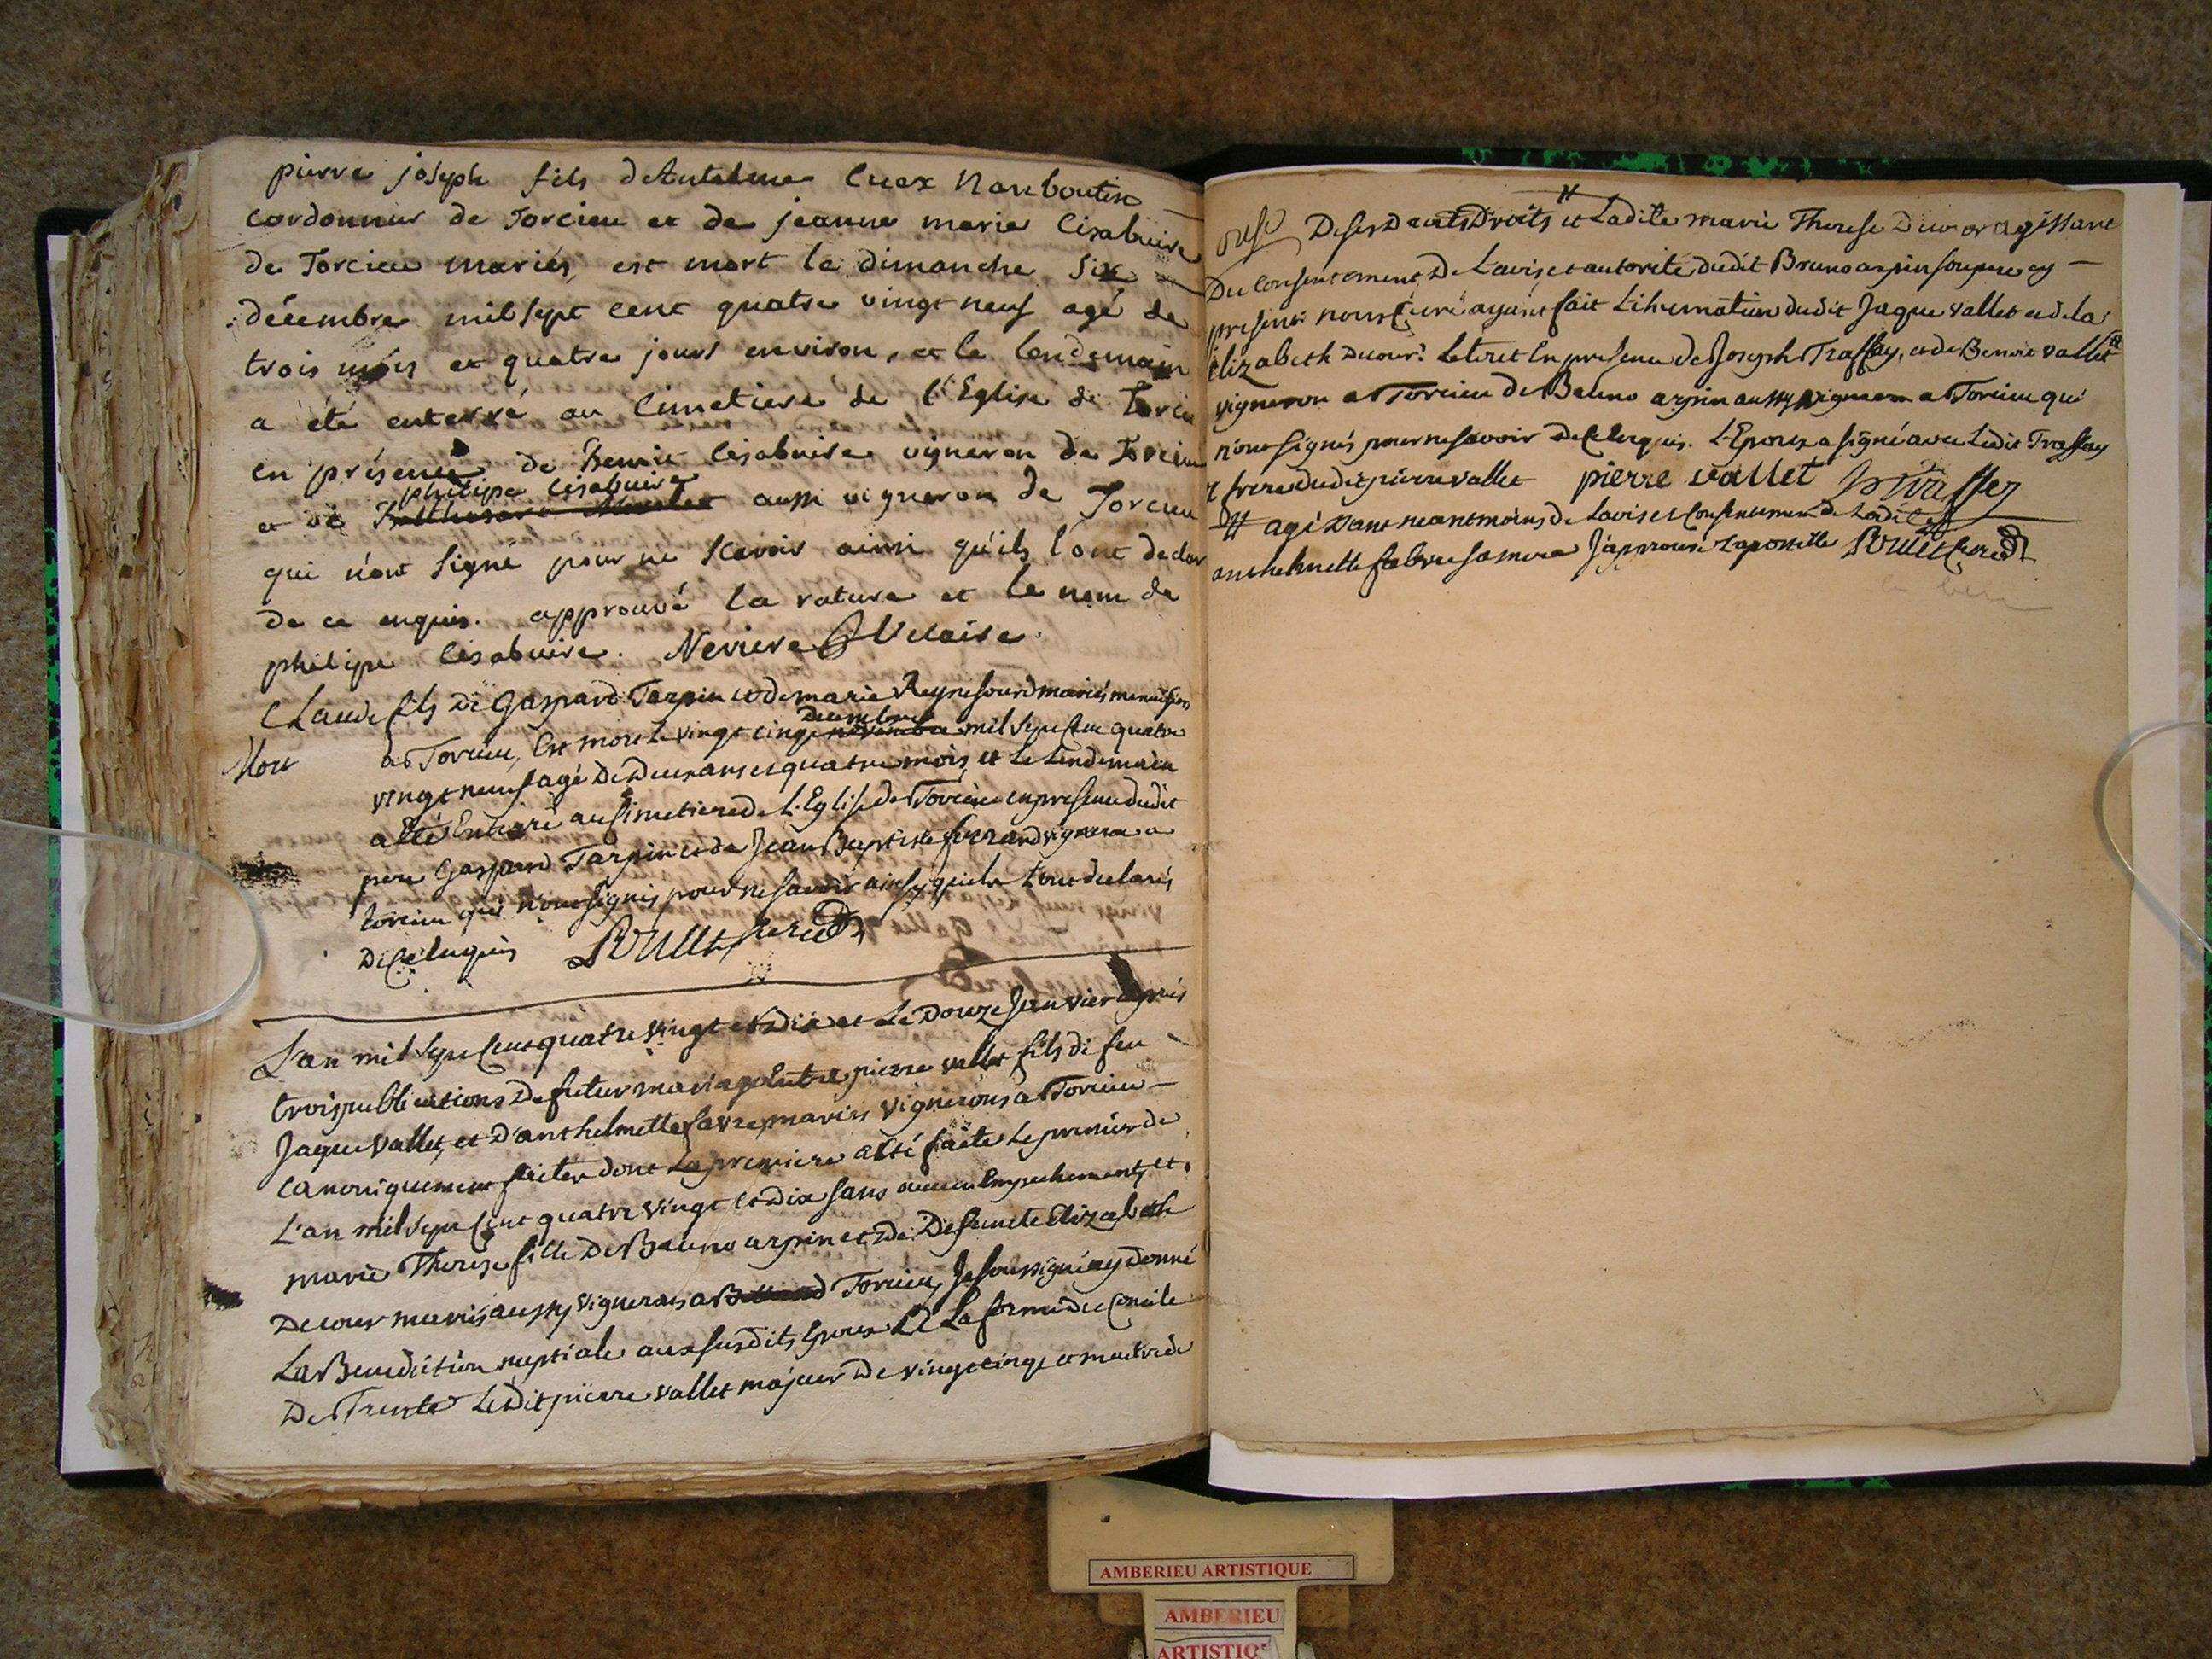 pierre joseph fils d'Antelme Cuox Nanboutin
cordonnier de Torcieu et de jeanne marie lisabuire
de Torcieu mariés, est mort le dimanche six
décembre mil sept cent quatre vingt neuf agé de
trois mois et quatre jours environ, et le lendemain
a été enterré au Cimetiere de l'Eglise de Torcieu
en présence de Benoit lisabuire vigneron de Torcieu
philipe lisabuire
et de aussi vigneron de Torcieu
qui n'ont signé pour ne scavoir ainsi qu'ils l'ont declar
de ce enquis. approuvé la rature et le nom de
philipe lisabuire. Vicaire
Claude fils de Gaspard Tarpin et de marie mariés
Mort
decembre
de Torcieu, Est mort le vingt cinq novembre mil Sept Cent quatre
vingt neuf agé De Deux ans et quatre mois, et Le Lendemain
a Eté Enterré au simetiere de L'Eglise de Torcieu en presence dudit
pere Gaspard Tarpin et de Jean Baptiste ferrand vigneron a
torcieu qui n'ont signés pour ne savoir ainsy quils L'ont declarés
De Ce Enquis Curé
L'an mil Sept Cent quatre vingt et dix et Le Douze Janvier après
trois publications De futur mariage Entre pierre vallet fils de feu
Jaque Vallet, et D'anthelmette favre, mariés vignerons a Torcieu
Canoniquement faites dont La premiere a Eté faite Le premier de
L'an mil Sept Cent quatre vingt et Dix sans aucun Empechement, et
marie Therese fille De Bruno arpin et de Defuncte Elizabeth
Decour mariés aussy vignerons a Torcieu, Je soussigné ay donné
La Benediction nuptiale aux susdits Epoux La forme du Concile
De Trente Ledit pierre vallet majeur De vingt cinq et maitre de
De ses Droits et Ladite marie Therese agissant
Du Consentement De L'avis et autorité dudit Bruno arpin son pere cy
present nous Curé ayant fait L'ihumation dudit Jaque vallet et de la
Elizabeth Decour. Le tout En presence de Joseph Traffay, et de Benoit vallet
vigneron a Torcieu de Bruno arpin aussy vigneron a Torcieu qui
n'ont signés pour ne savoir De Ce Enquis. L'Epoux a signé avec Ledit Traffay
frere dudit pierre vallet pierre vallet
# agissant neantmoins de L'avis et Consentement de Ladite
anthelmette sa mere J'approuve L'apostille Curé
AMBERIEU ARTISTIQUE
AMBERIEU